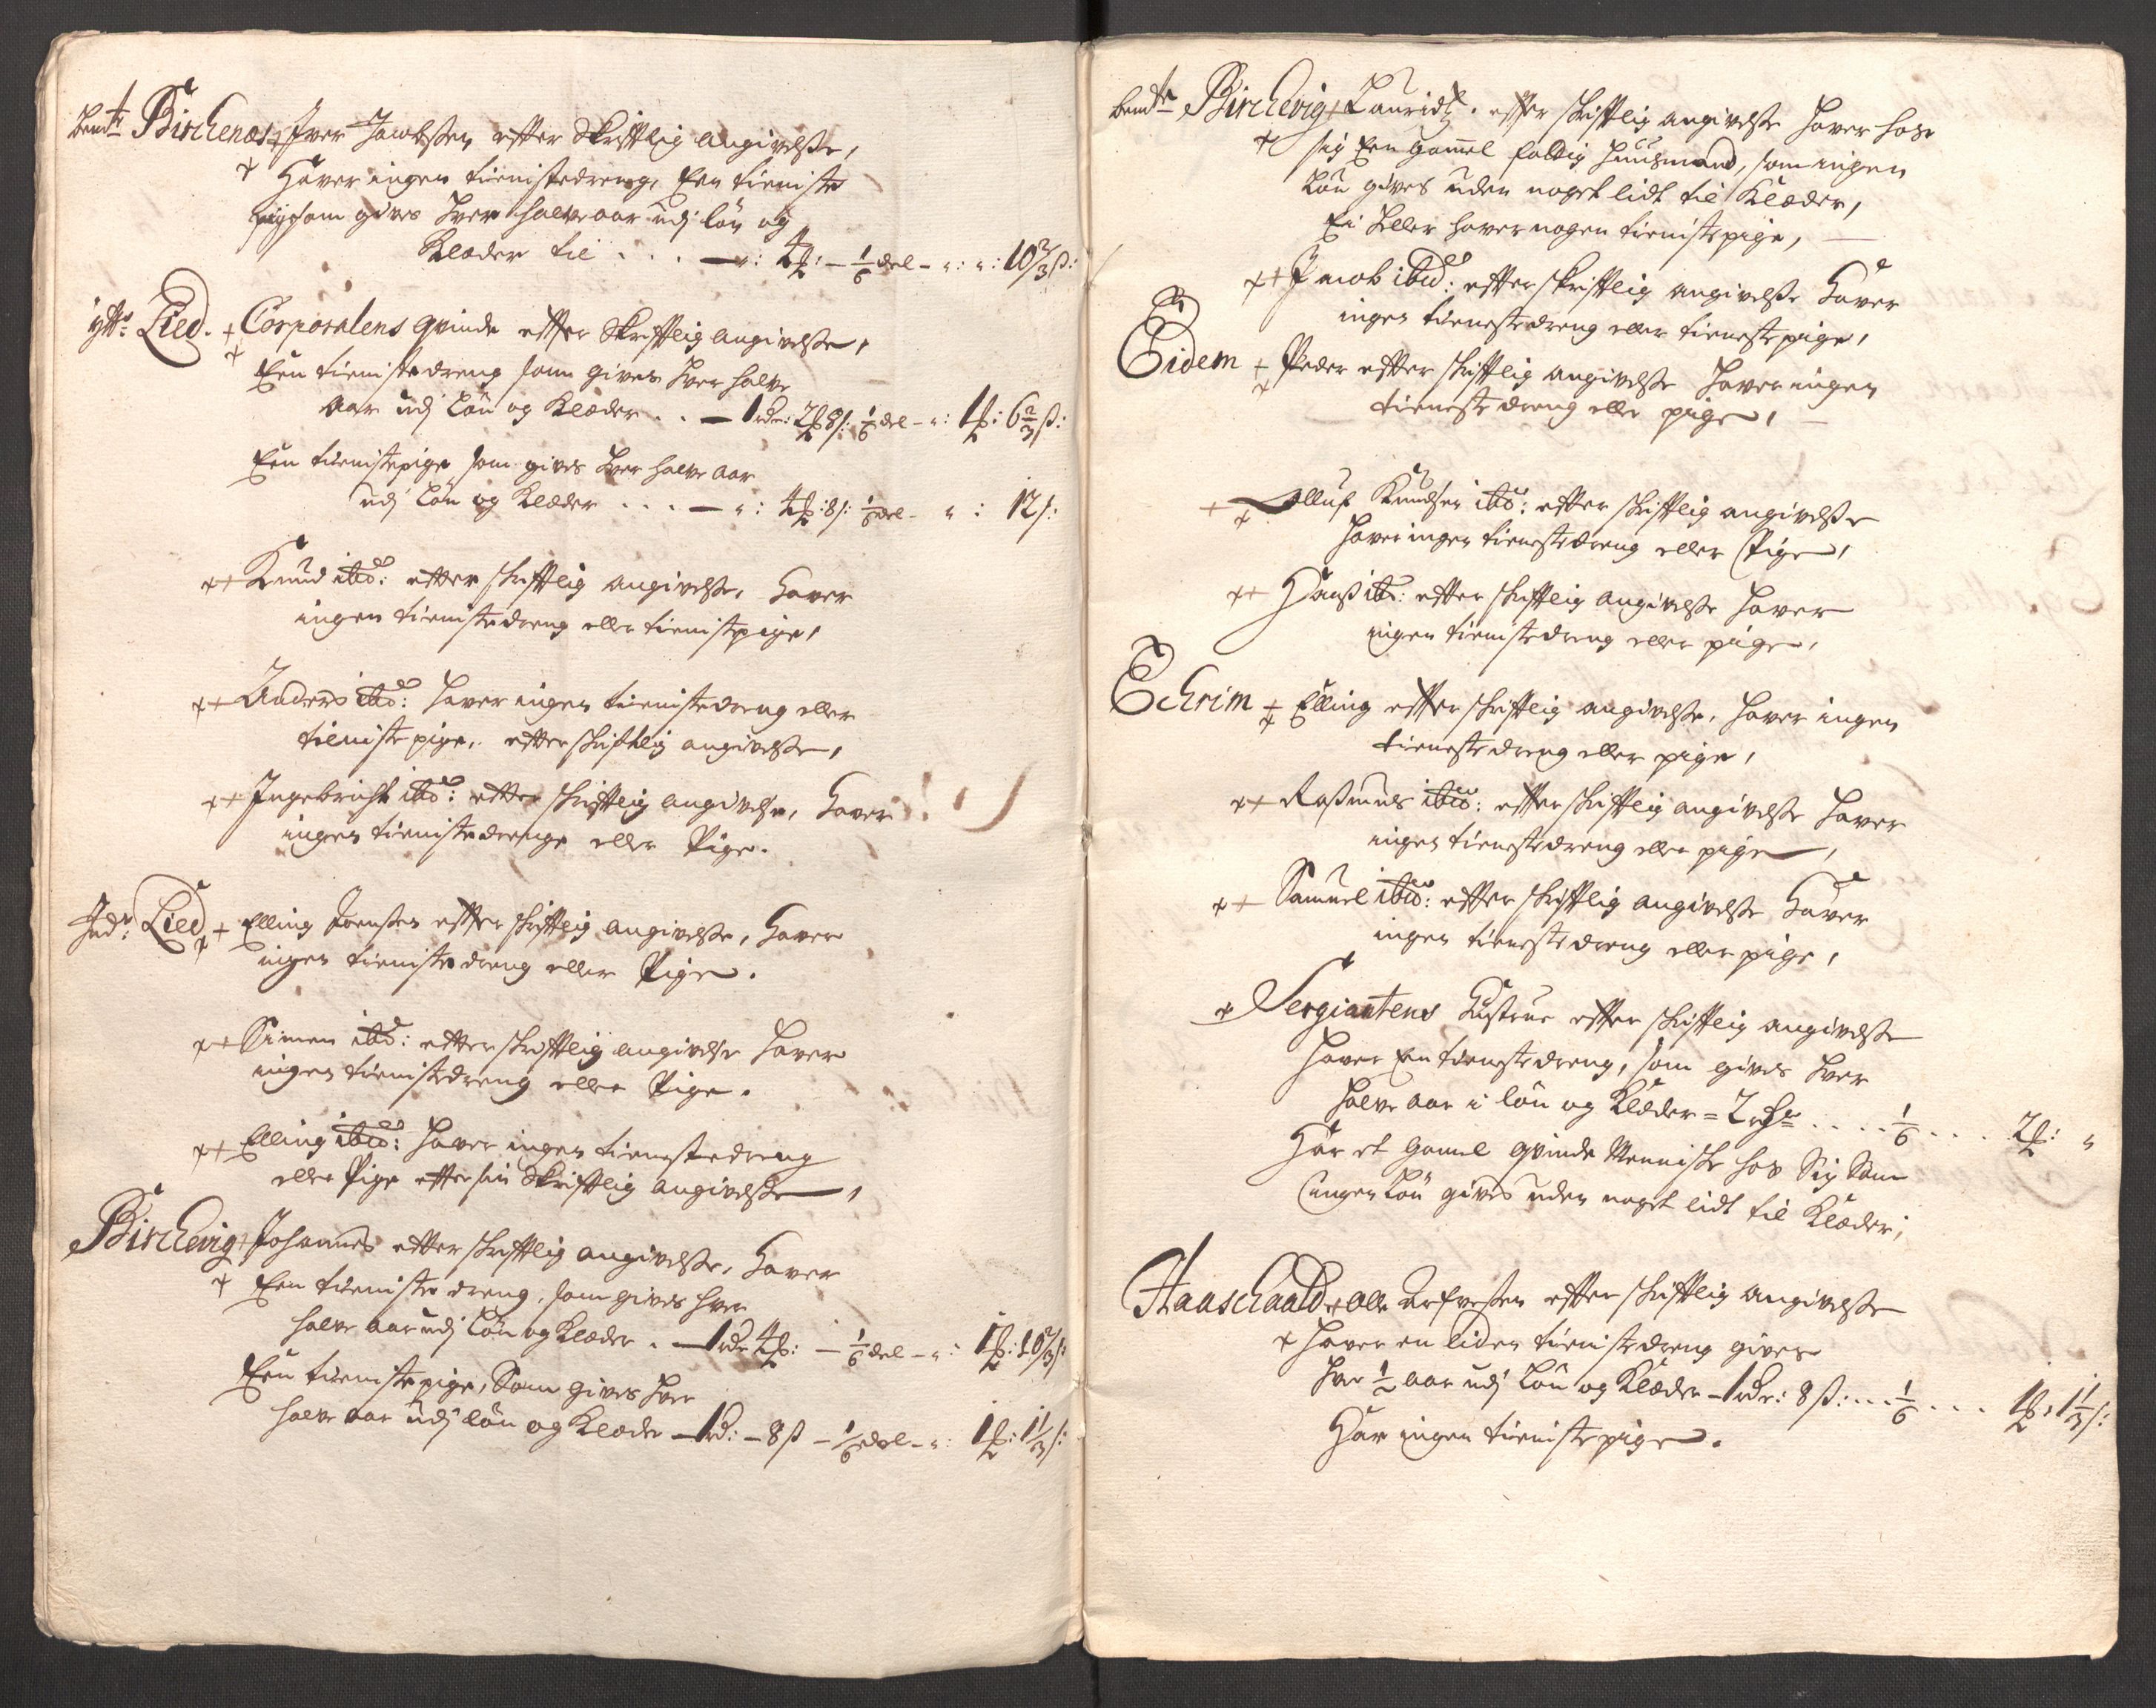 bemte Birchenæs + Iver Jacobsen effter Skrifftlig angivelsse,
+ Haver ingen tienistedreng, Een tieniste
pige som gives hver halve aar udj løn og
Klæder til . . . — „: 4 ₰: — 1/6 del - „: „: 10 2/3 ß:
ytt: Lied. + Corporalens qvinde effter Skrifftlig angivelsse,
+ Een tienistedreng som gives hver halve
aar udj Løn og Klæder . . — 1 rdr: 2 ₰ 8 ß: 1/6 del - „: 1 ₰: 6 2/3 ß:
Een tienistepige som gives hver halve aar
udj Løn og Klæder . . . — „: 4 ₰: 8 ß: 1/6 del - „: 12 ß:
++ Knud ibd: effter skrifftlig angivelsse, haver
ingen tienistedreng eller tienistepige,
++ Anders ibd: haver ingen tienistedreng eller
tieniste pige, effter skrifftlig angivelsse,
++ Ingebricht ibd: effter skrifftlig angivelse, haver
ingen tienistedrenge eller Pige.
Indr: Lied + + Elling Joensen effter skrifftlig angivelsse, haver
ingen tieniste dreng eller Pige.
++ Simen ibd: effter skrifftlig angivelse haver
ingen tienistedreng eller Pige.
++ Elling ibid: haver ingen tienestedreng
eller Pige effter sin Skrifftlig angivelsse,
Birchevig + Johannes effter skrifftlig angivelsse, haver
+ Een tieniste dreng, som gives hver
halve aar udj Løn og Klæder . — 1 rdr 4 ₰: — 1/6 del - „: 1 ₰: 10 2/3 ß:
Een tieniste pige, Som gives hver
halve aar udj løn og Klæder — 1 rd: — 8 ß — 1/6 del - „: 1 ₰: 1 1/3 ß:
bemte Birchevig + Lauridtz. effter skrifftlig angivelsse haver hos
+ sig Een gamel fattig huusmand, som ingen
Løn gives uden noget lidt til Klæder,
Ei heller haver nogen tienistepige,
++ Jacob ibid: effter skrifftlig angivelsse haver
ingen tienestedreng eller tienestepige,
Eidem + Peder effter skrifftlig angivelsse haver ingen
+ tieneste dreng eller pige,
++ Olluf Knudsen ibd: effter skrifftlig angivelsse
haver ingen tienestedreng eller Pige,
++ Hans ibd: effter skrifftlig angivelsse haver
ingen tienistedreng eller pige,
Echrim + Elling effter skrifftlig angivelsse, haver ingen
+ tienestedreng eller pige,
++ Rasmus ibid: effter skrifftlig angivelsse haver
ingen tienestedreng eller pige,
++ Samuel ibid: effter skrifftlig angivelsse haver
ingen tienestedreng eller pige,
+ Sergiantens Hustrue effter skrifftlig angivelsse
haver Een tienestedreng, som gives hver
halve aar i løn og Klæder = 2 rdr . . . . 1/6 . . . . 2 ₰: „
Har et gamel qvinde Menniske hos Sig Som
ingen Løn gives uden noget lidt til Klæder;
Haaschaald + Olle effter skrifftlig angivelsse
+ haver en liden tienistedreng gives
hver 1/2 aar udj Løn og Klæder - 1 rdr: 8 ß: . . . 1/6 . . . 1 ₰: 1 1/3 ß:
Har ingen tienistepige.